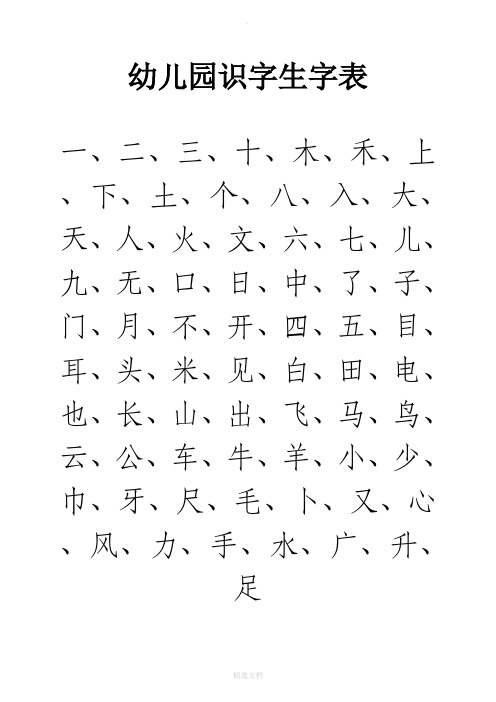 幼儿园识字生字表
一、二、三、十、木、禾、上
、下、土、个、八、入、大、
天、人、火、文、六、七、儿、
九、无、口、日、中、了、子、
门、月、不、开、四、五、目、
耳、头、米、见、白、田、电、
也、长、山、出、飞、马、鸟、
云、公、车、牛、羊、小、少、
巾、牙、尺、毛、卜、又、心
、风、力、手、水、广、升、
足
精选文档